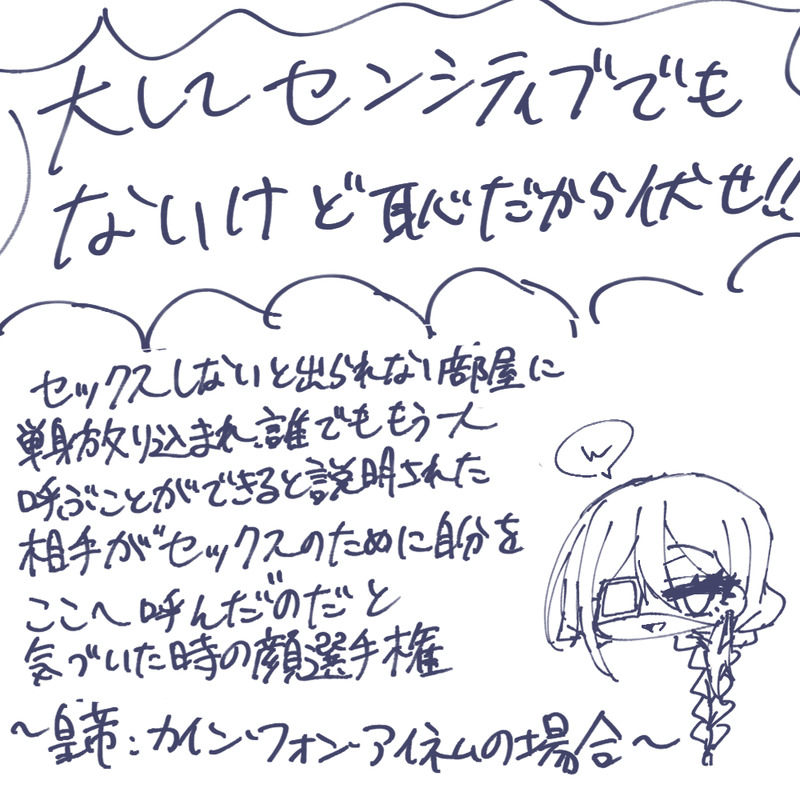 大してセンシティブでも
ないけど恥だから伏せ!!
セックスしないと出られない部屋に
単身放り込まれ、誰でももう一人
呼ぶことができると説明された
相手がセックスのために自分を
ここへ呼んだのだと
気づいた時の顔選手権
～皇帝:カイン・フォン・アイネムの場合～
w